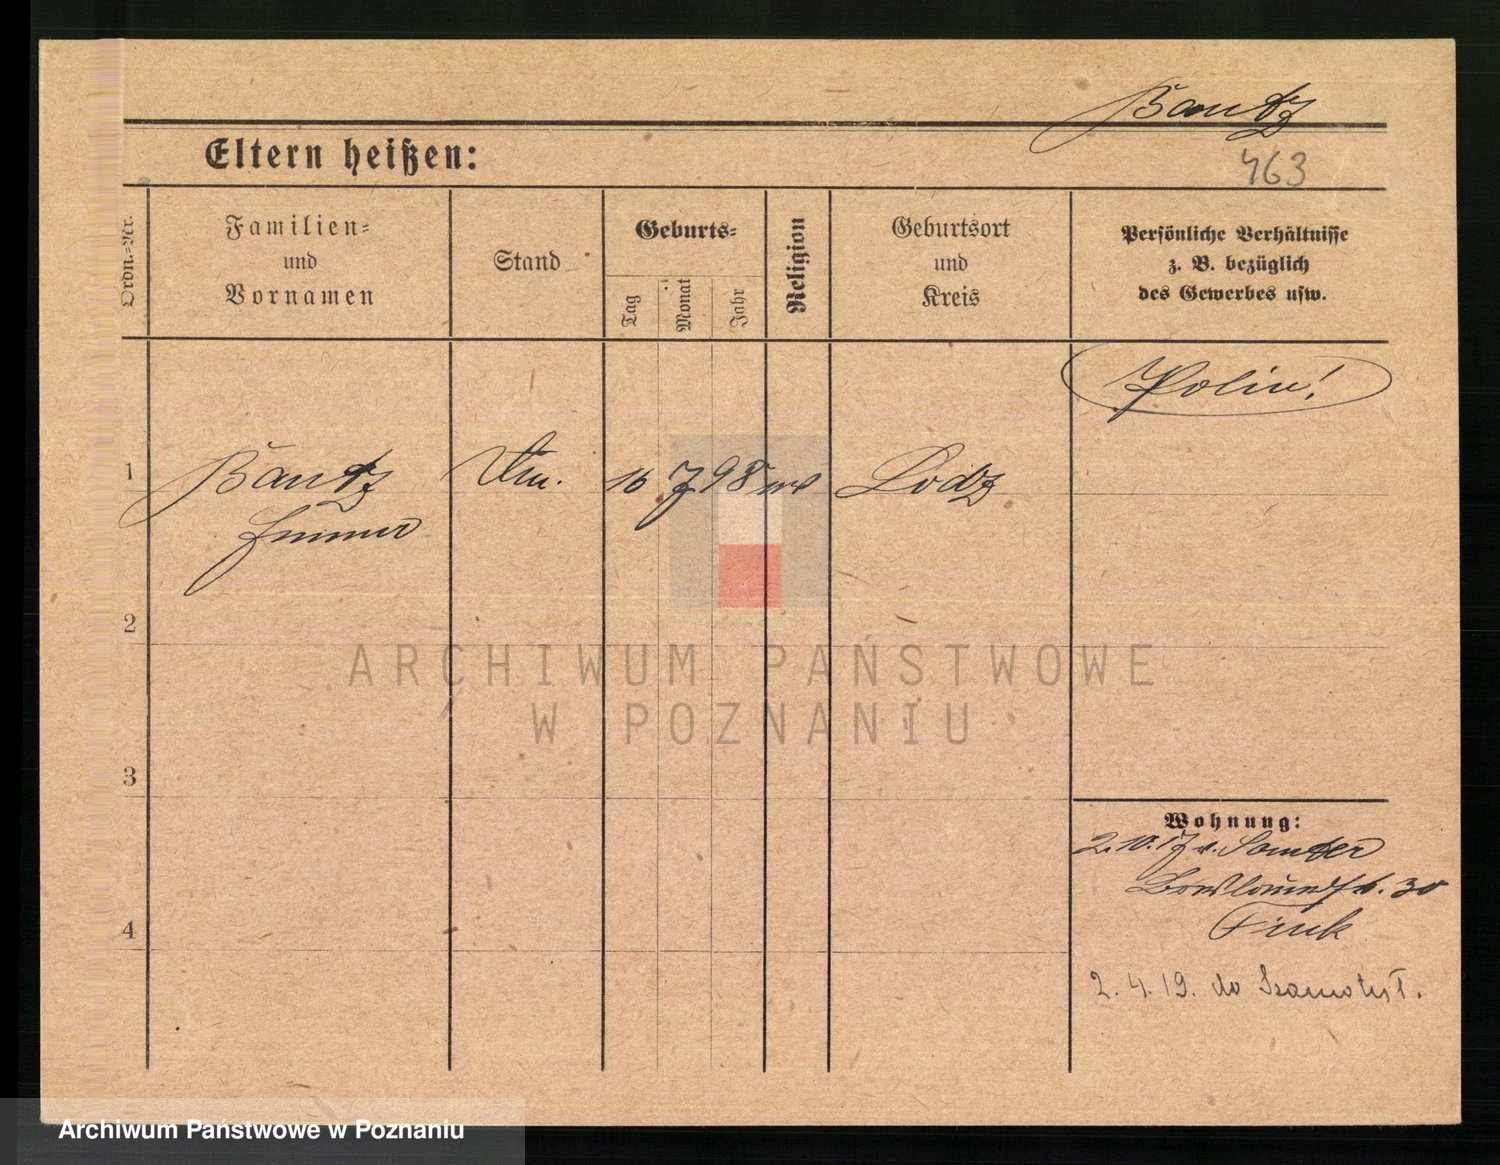 Bautz
Eltern heißen:
463
Ordn.-Nr.
Familien-
und
Vornamen
Stand
Geburts-
Tag
Monat
Jahr
Religion
Geburtsort
und
Kreis
Persönliche Verhältnisse
z. B. bezüglich
des Gewerbes usw.
Polin!
1
Bautz
16 7 98
Lodz
2
ARCHIWUM PAŃSTWOWE
W POZNANIU
3
Wohnung:
2.10.17 v. Samter
30
Fink
4
2.4.19. do Szamotuł.
Archiwum Państwowe w Poznaniu